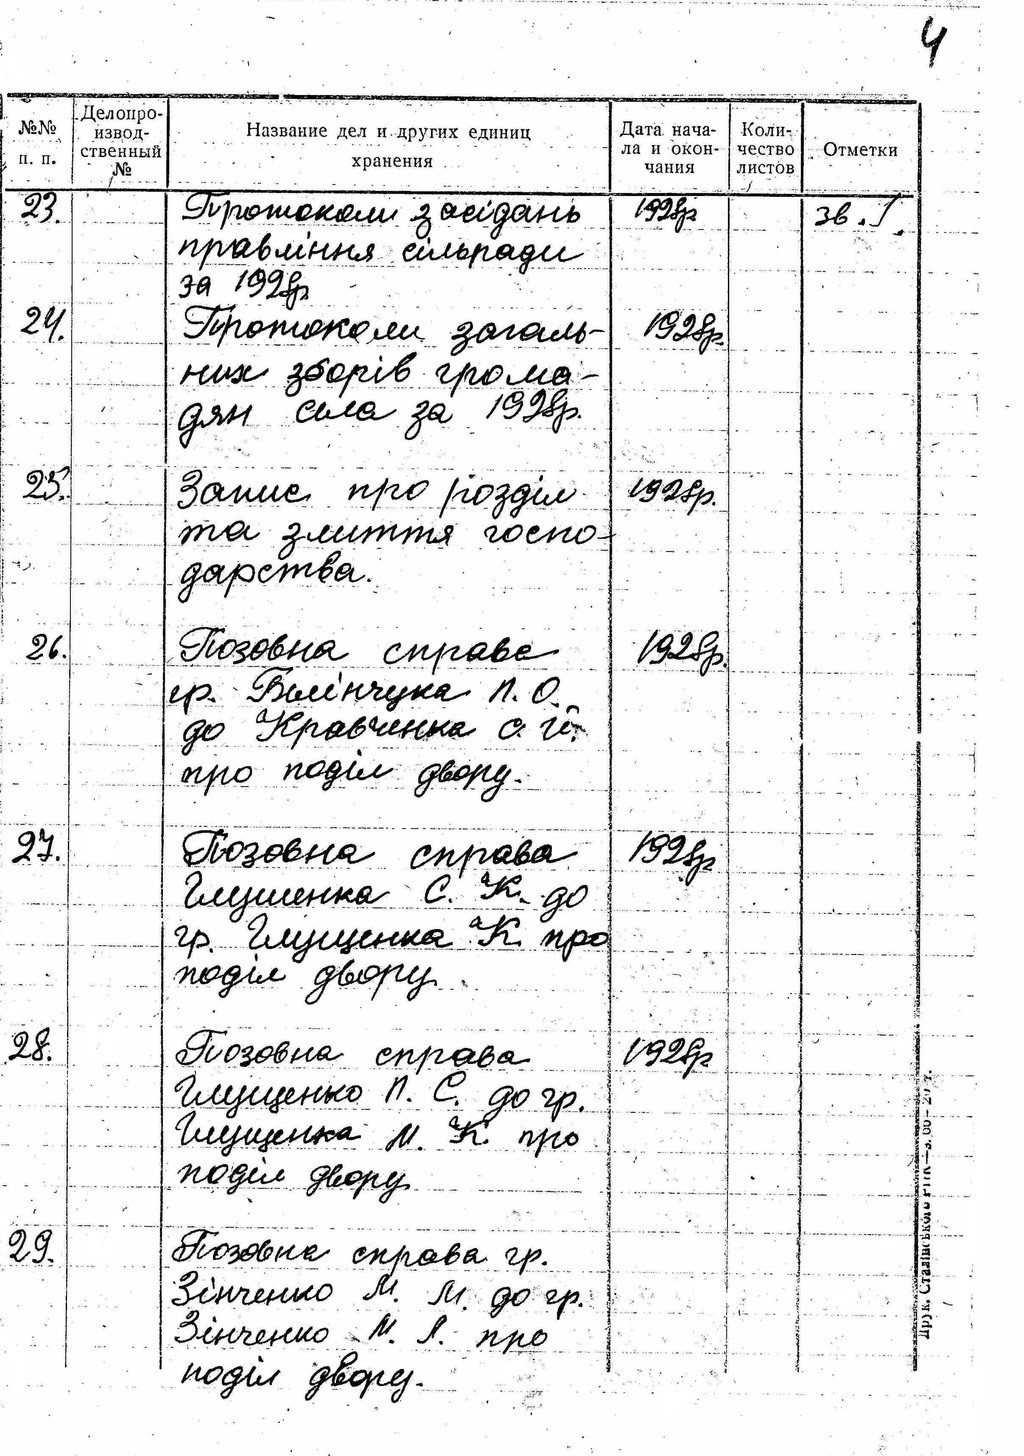 4
№№ п. п.
Делопро-извод-ственный №
Название дел и других единиц хранения
Дата нача-ла и окон-чания
Коли-чество листов
Отметки
23. Протоколи засідань 1928р зв. I.
правління сільради
за 1928р
24. Протоколи загаль- 1928р.
них зборів грома-
дян села за 1928р.
25. Запис про розділ 1928р.
та злиття госпо-
дарства.
26. Позовна справа 1928р.
гр. Белінчука П. О.
до Кравченка
про поділ двору.
27. Позовна справа 1928р
Глушенка С. К. до
гр. Глущенка К про
поділ двору.
28. Позовна справа 1928р
Глущенко П. С. до гр.
Глущенка М. К. про
поділ двору
29. Позовна справа гр.
Зінченко М. М. до гр.
Зінченко М. Л. про
поділ двору.
Друк. Сталінського